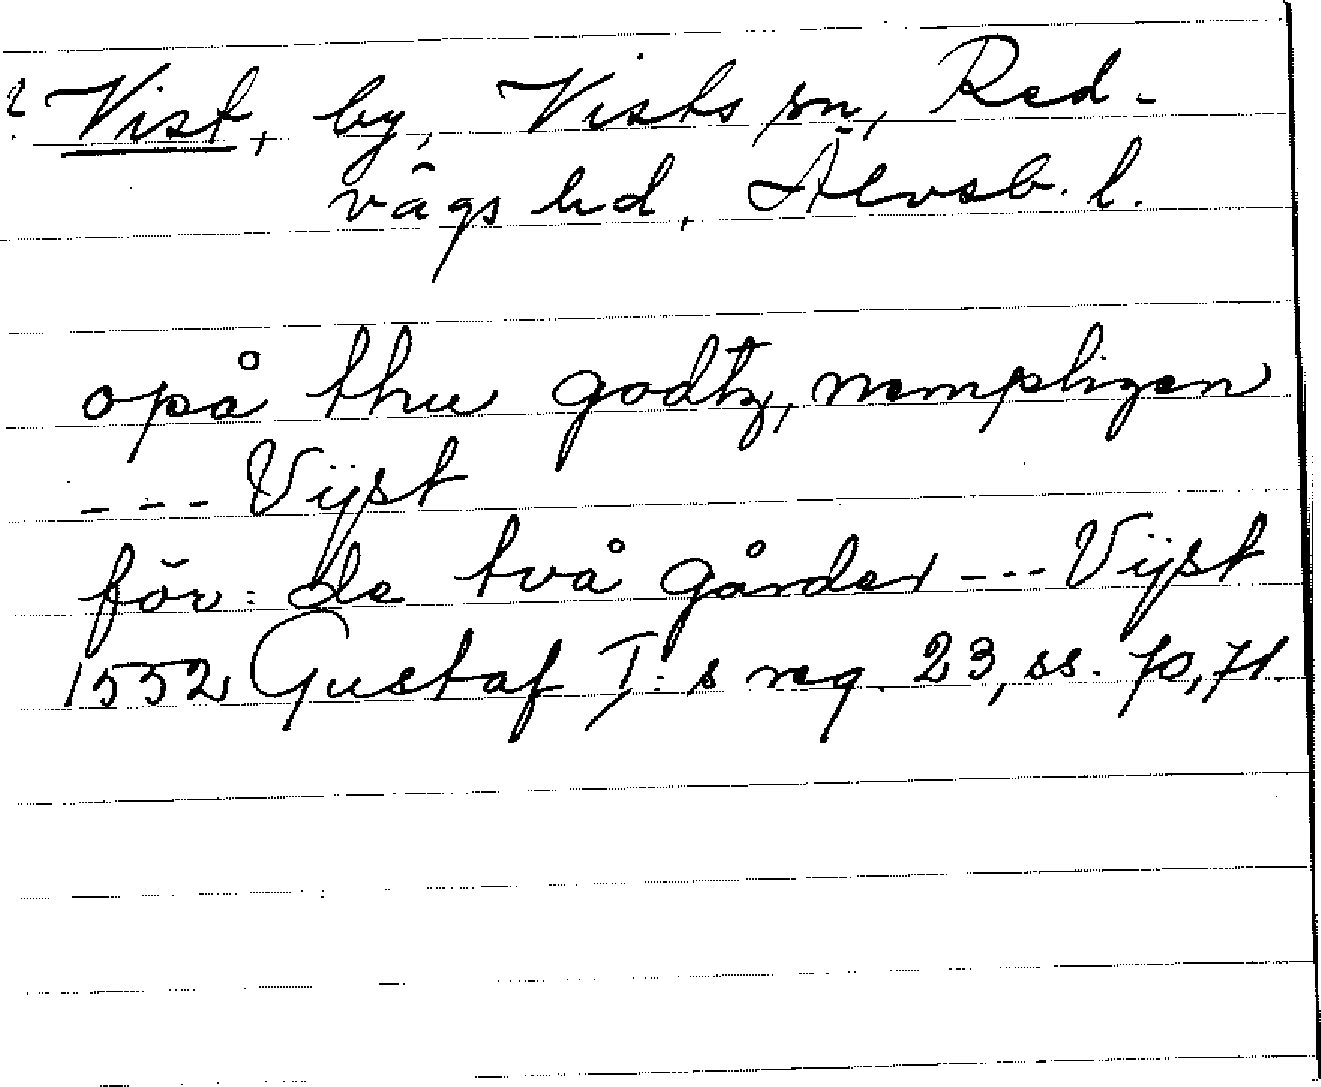 ? Vist, by, Vists sn, Red-
vägs hd, Älvsb. l.
opå thu godtz, nempligen
--- Vijst
för: de två gårder --- Vijst
1552 Gustaf I:s reg. 23, ss. 70, 71.